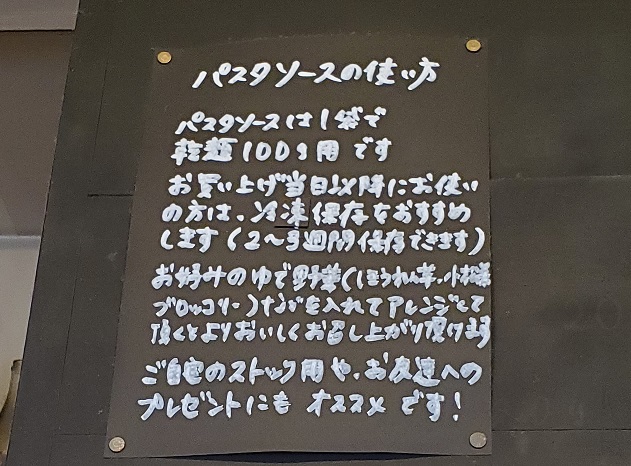 パスタソースの使い方
パスタソースは1袋で
乾麺100g用です
お買い上げ当日以降にお使い
の方は、冷凍保存をおすすめ
します(2〜3週間保存できます)
お好みのゆで野菜(ほうれん草、小松菜
ブロッコリー)などを入れてアレンジして
頂くとよりおいしくお召し上がり頂けます
ご自宅のストック用や、お友達への
プレゼントにも オススメ です!